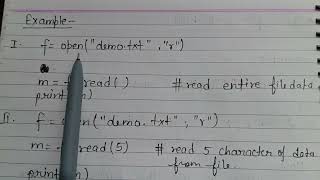 Example-
I. f=open("demo.txt" ,"r")
m = read( ) # read entire file data
print(m)
II. f = open("demo.txt" , "r")
m = read(5) # read 5 character of data
from file.
print(m)